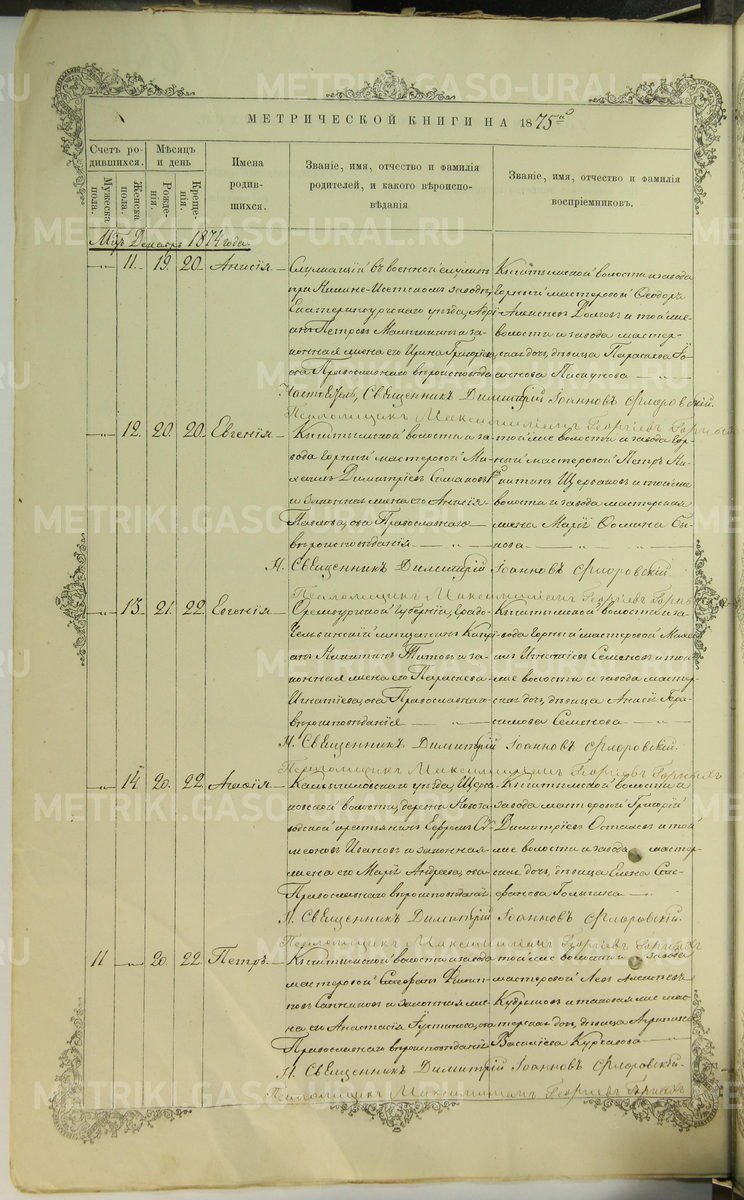 МЕТРИЧЕСКОЙ КНИГИ НА 1875й
Счетъ ро-
дившихся.
Мужеска
пола.
Женска
пола.
Мѣсяцъ
и день
Рожде-
нія.
Креще-
нія.
Имена
родив-
шихся.
Званіе, имя, отчество и фамилія
родителей, и какого вѣроиспо-
вѣданія
Званіе, имя, отчество и фамилія
воспріемниковъ.
Мцъ Декабрь 1874 года.
11. 19. 20. Анисія.
Служащій въ военной службѣ
при Нижне-Исетскомъ заводѣ,
Екатеринбургскаго уѣзда,
Петровъ и за-
конная жена его Ирина Григорьева,
оба Православнаго вѣроисповѣда
волости и завода
Горный мастеровой Ѳеодоръ
Алексѣевъ Долговъ и той же
волости и завода мастер-
ская дочь, дѣвица Параскева Іо-
аннова Пискунова
Настоятель, Священникъ Димитрій Іоанновъ Флоровскій.
Псаломщикъ Максимиліанъ Георгіевъ
12. 20. 20. Евгенія
волости и за-
вода Горный мастеровой Ми-
хаилъ Димитріевъ
и законная жена его Анисія
Павлова, оба Православнаго
вѣроисповѣданія
той же волости и завода Гор-
ный мастеровой Петръ Ни-
китинъ Щербаковъ и той же
волости и завода мастерская
жена Марія Ѳомина
Н. Священникъ Димитрій Іоанновъ Флоровскій.
Псаломщикъ Максимиліанъ Георгіевъ
13. 21. 22. Евгенія
Оренбургской Губерніи, Градо-
Челябинскій мѣщанинъ
Никитинъ Титовъ и за-
конная жена его Параскева
Игнатіева, оба Православнаго
вѣроисповѣданія
волости и за-
вода Горный мастеровой Миха-
илъ Игнатіевъ Семеновъ и той
же волости и завода мастер-
ская дочь, дѣвица Анисія Гера-
симова Семенова
Н. Священникъ Димитрій Іоанновъ Флоровскій.
Псаломщикъ Максимиліанъ Георгіевъ
14. 20. 22. Агафія.
Камышловскаго уѣзда,
волости, деревни
крестьянинъ Ефремъ Си-
меоновъ Ивановъ и законная
жена его Марія Андреева, оба
Православнаго вѣроисповѣданій
волости и
завода мастеровой Григорій
Димитріевъ и той
же волости и завода мастер-
ская дочь, дѣвица Елена Сте-
фанова
Н. Священникъ Димитрій Іоанновъ Флоровскій.
Псаломщикъ Максимиліанъ Георгіевъ
11 20. 22. Петръ.
волости и завода
мастеровой Стефанъ Филип-
повъ Санниковъ и законная же-
на его Анастасія Іустинова, оба
Православнаго вѣроисповѣданій
той же волости и завода
мастеровой Левъ Алексѣевъ
и таковая же мас-
терская дочь, дѣвица Агрипина
Василіева
Н. Священникъ Димитрій Іоанновъ Флоровскій.
Псаломщикъ Максимиліанъ Георгіевъ
METRIKI.GASO-URAL.RU